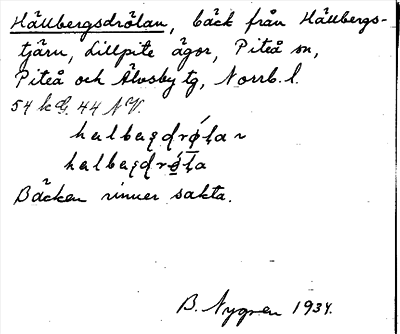 Hällbergsdrölan, bäck från Hällbergs-
tjärn, Lillpite ägor, Piteå sn,
Piteå och Älvsby tg, Norrb. l.
54 k G. 44 NV.
Bäcken rinner sakta.
B. Nygren 1934.